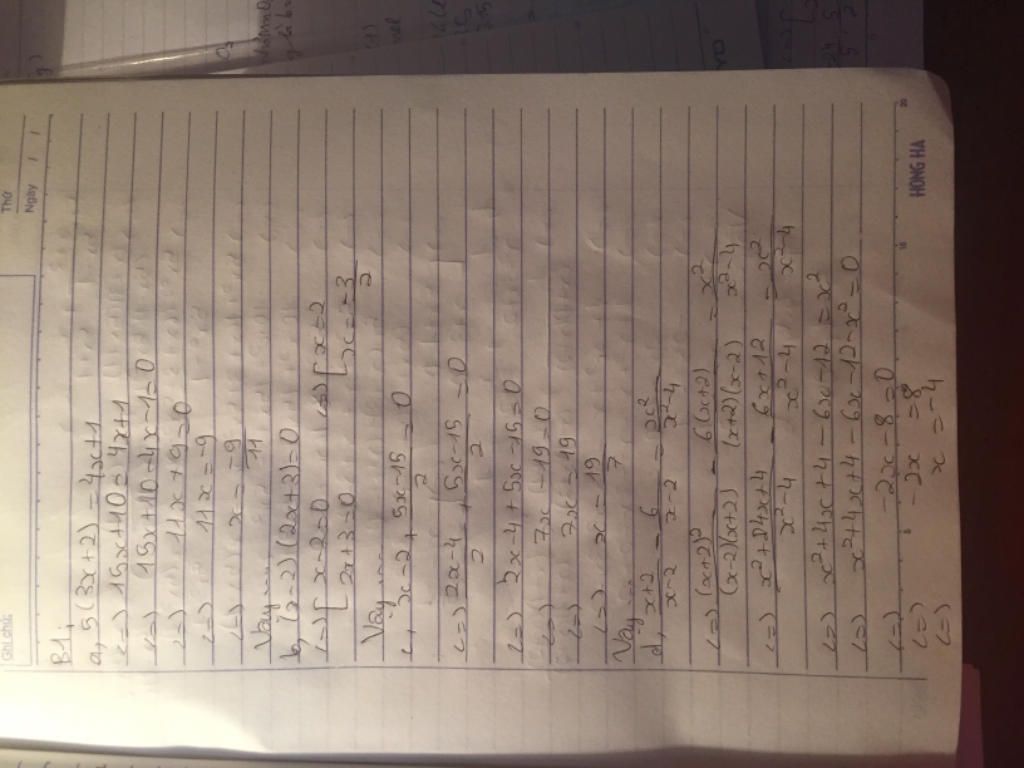 Thứ
Ngày
Ghi chú:
B1:
a, 5(3x+2) = 4x+1
<=> 15x+10 = 4x+1
<=> 15x+10-4x-1=0
<=> 11x+9=0
<=> 11x=-9
<=> x = -9/11
Vậy ...
b, (x-2)(2x+3)=0
<=> [ x-2=0 <=> [ x=2
[ 2x+3=0 [ x = -3/2
Vậy ...
c, x-2 + (5x-15)/2 = 0
<=> (2x-4)/2 + (5x-15)/2 = 0
<=> 2x-4+5x-15=0
<=> 7x-19=0
<=> 7x=19
<=> x = 19/7
Vậy ...
d, (x+2)/(x-2) - 6/(x-2) = x²/(x²-4)
<=> (x+2)²/((x-2)(x+2)) - 6(x+2)/((x+2)(x-2)) = x²/(x²-4)
<=> (x²+4x+4)/(x²-4) - (6x+12)/(x²-4) = x²/(x²-4)
<=> x²+4x+4-6x-12=x²
<=> x²+4x+4-6x-12-x²=0
<=> -2x-8=0
<=> -2x=8
<=> x=-4
HONG HA